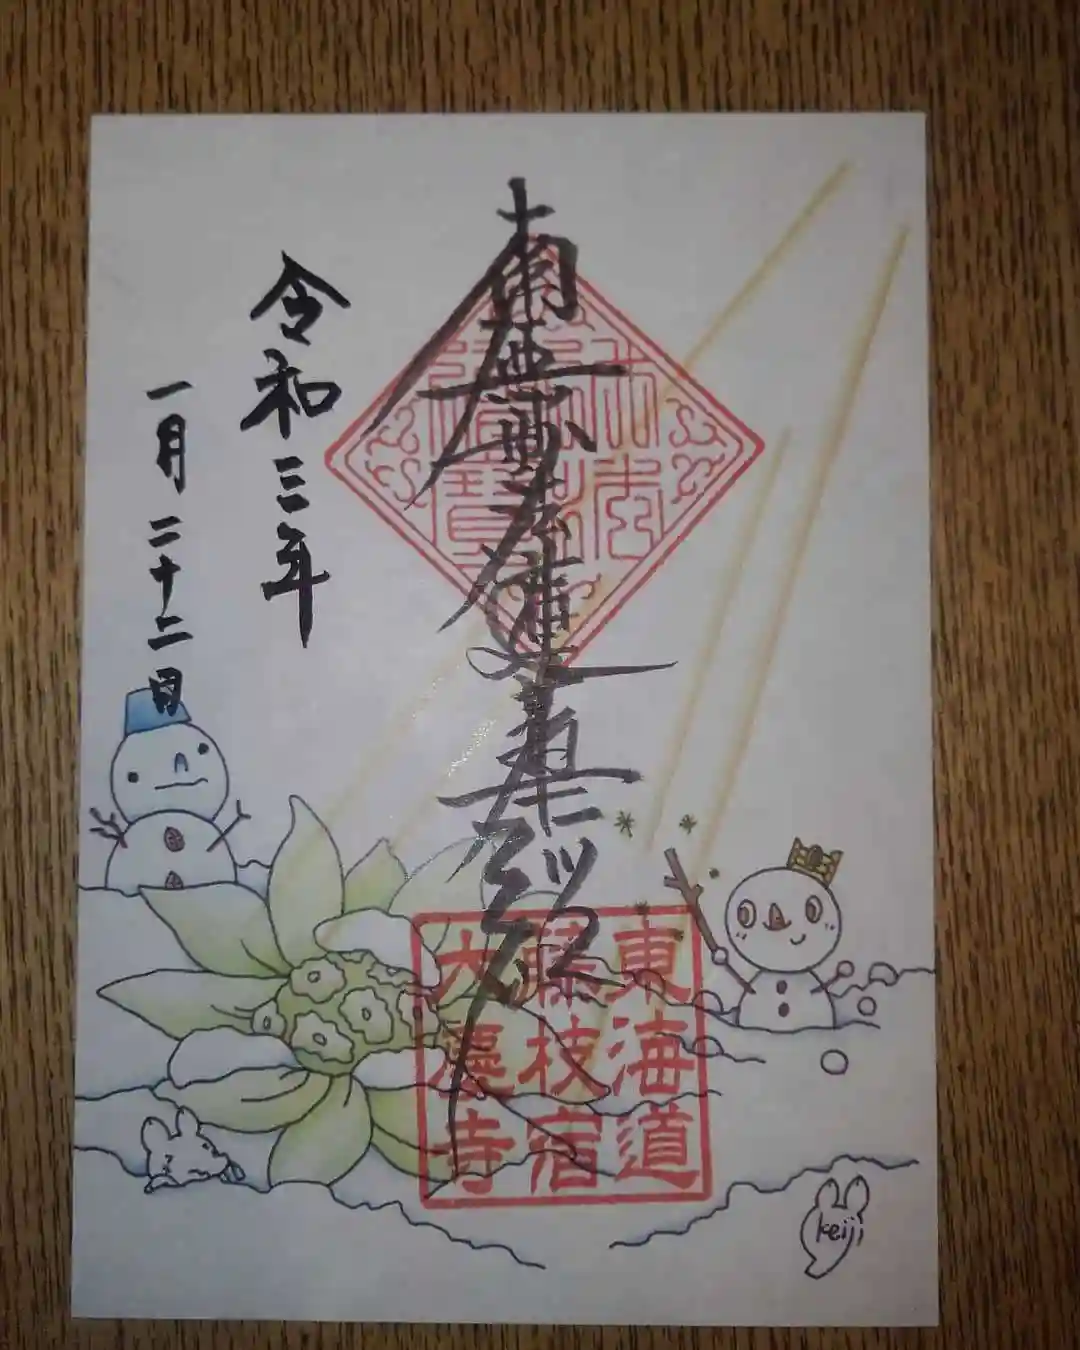 南無妙法蓮華経
令和三年
一月二十二日
東海道
藤枝宿
大慶寺
keiji